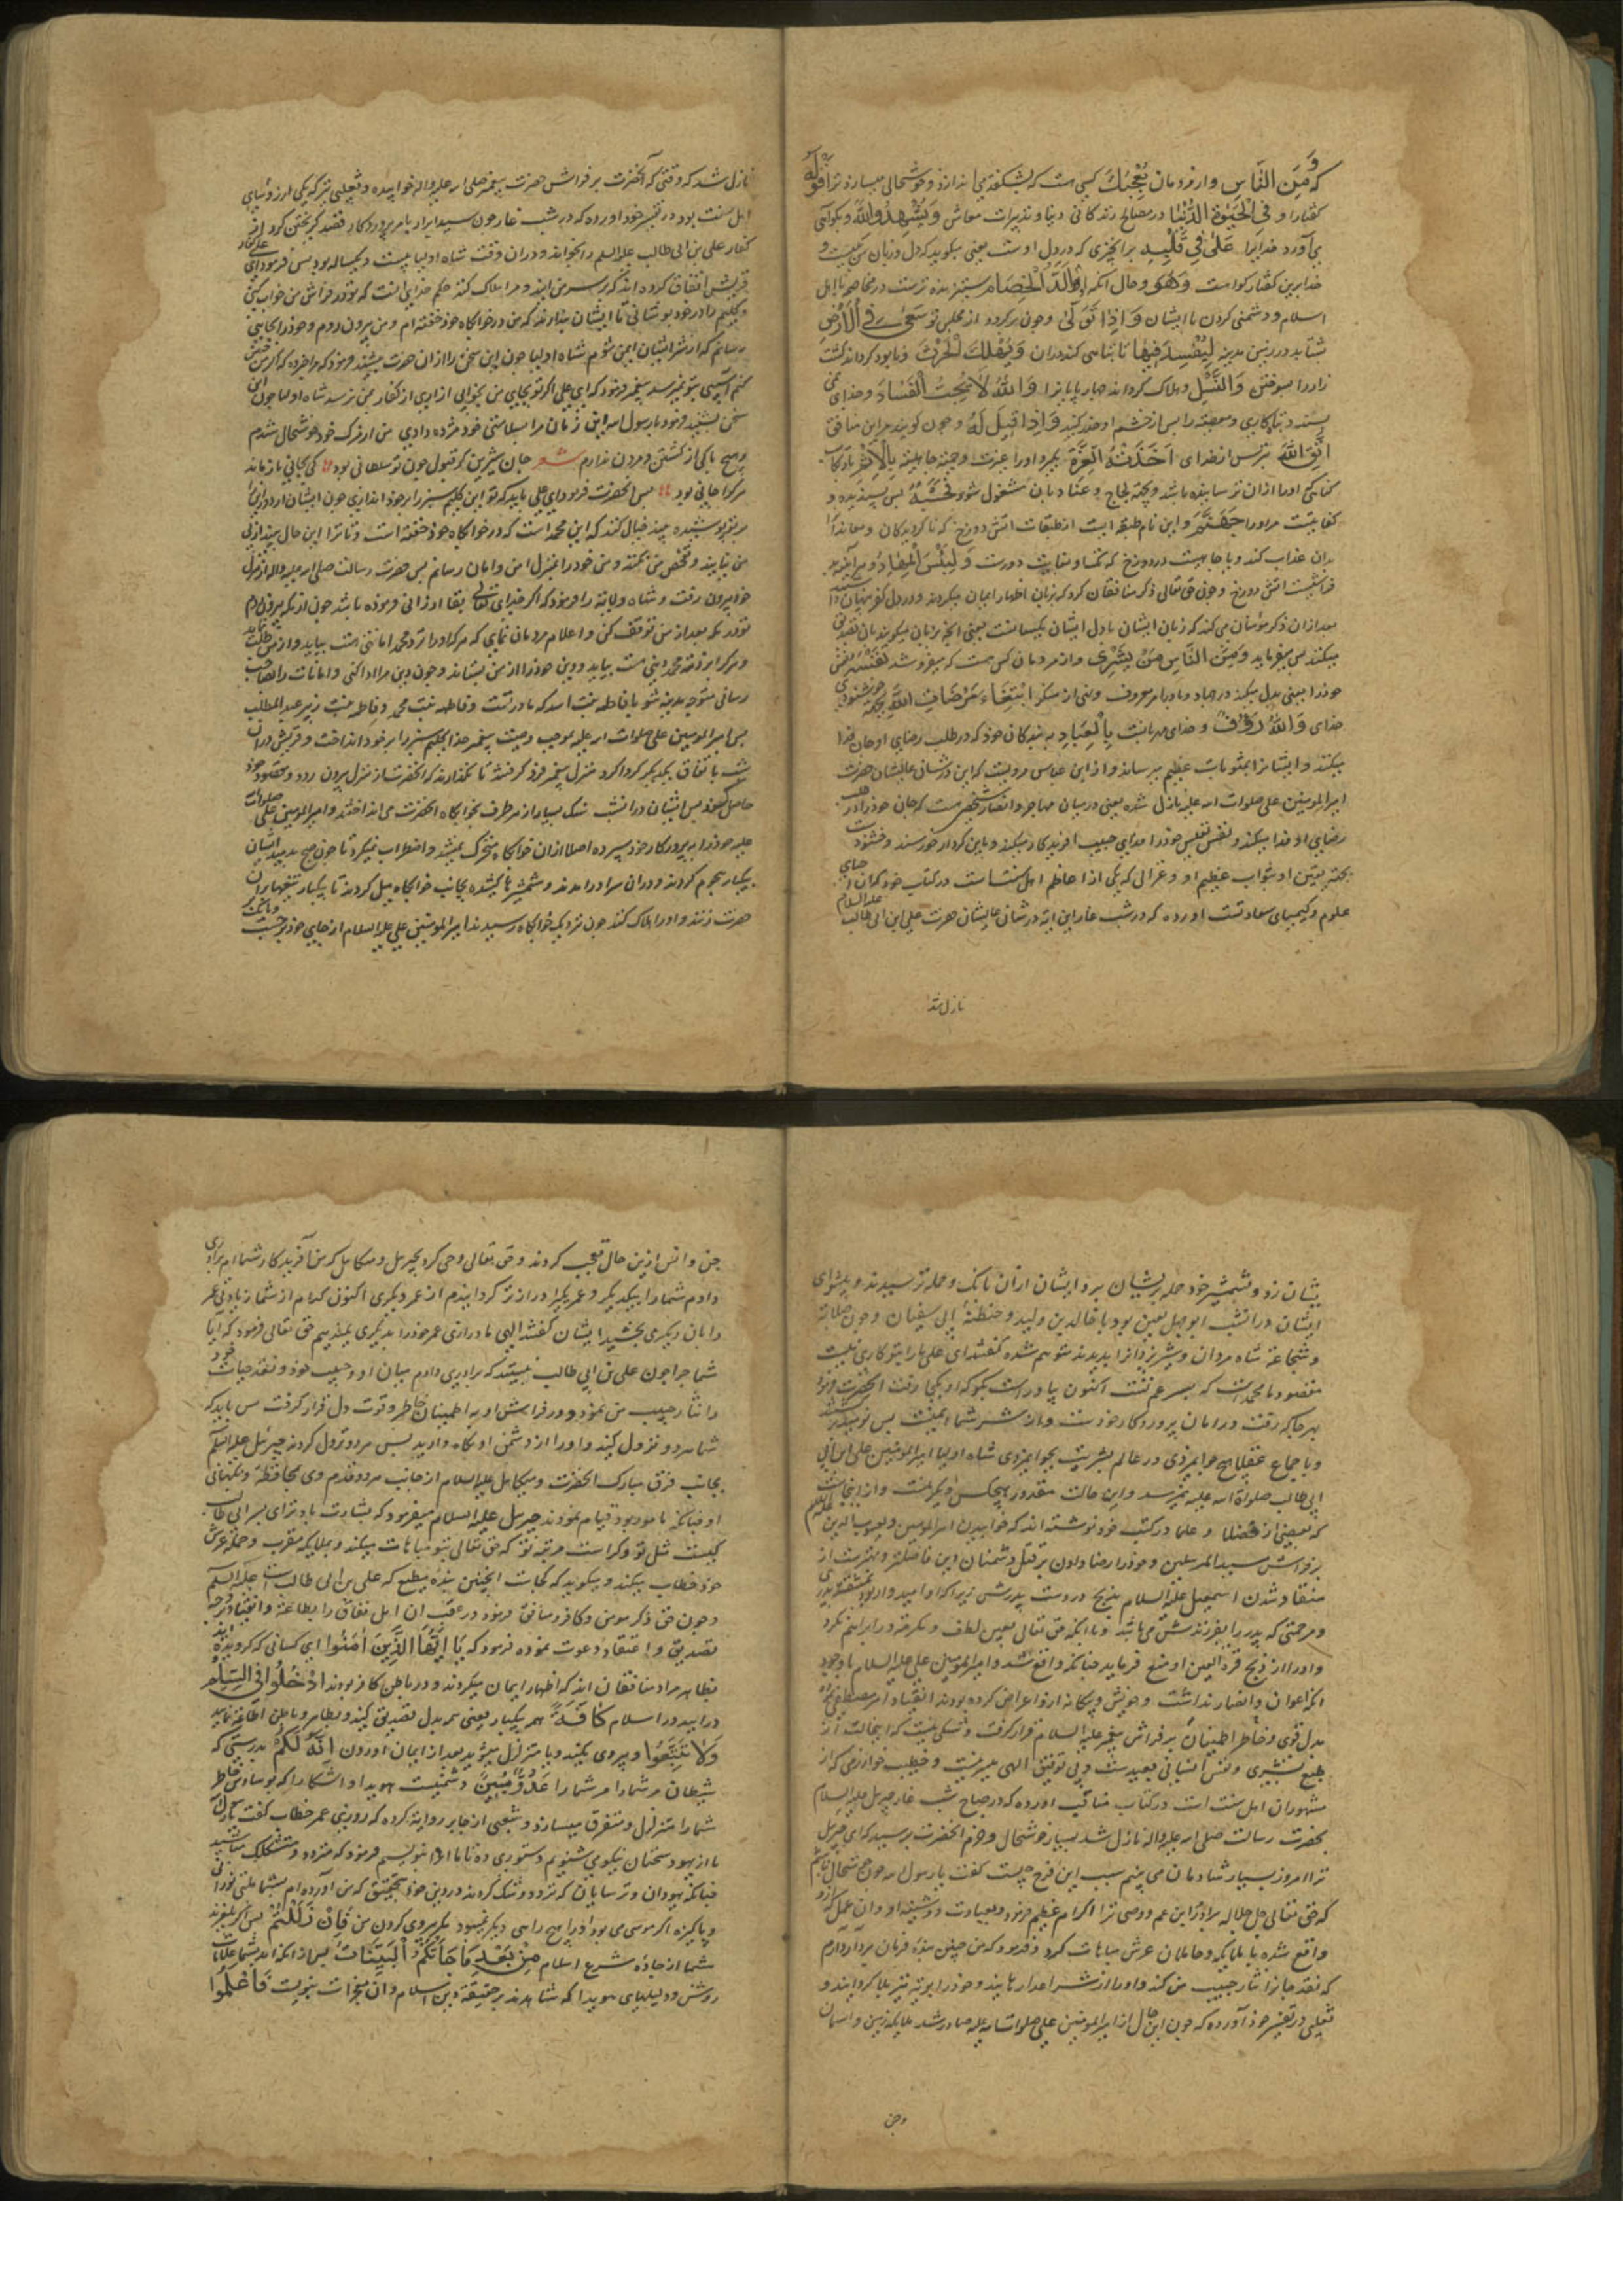 که وَمِنَ النَّاسِ واز مردمان یُعْجِبُكَ کسی هست که بشگفت می اندازد و خوشحالی میسازد ترا قَوْلُهُ
گفتار او فِی الْحَیٰوةِ الدُّنْیَا در مصالح زندگانی دنیا و تدبیرات معاش وَیُشْهِدُ اللّٰهَ و بگواهی
می آورد خدایرا عَلٰی فِی قَلْبِهِ برانچیزی که در دل اوست یعنی میگوید که دل و زبان من یکیست و
خدا برین گفتار گواه است وَهُوَ و حال آنکه او اَلَدُّ الْخِصَامِ ستیزنده ترست در مخاصمه با اهل
اسلام و دشمنی کردن با ایشان وَاِذَا تَوَلّٰی و چون برگردد از مجلس تو سَعٰی فِی الْاَرْضِ
بشتابد در زمین مدینه لِیُفْسِدَ فِیهَا تا تباهی کند دران وَیُهْلِكَ الْحَرْثَ و نابود گرداند کشت
زار را بسوختن وَالنَّسْلَ و هلاک گرداند چهارپایانرا وَاللّٰهُ لَا یُحِبُّ الْفَسَادَ و خدای نمی
پسندد تباهکاری و معصیت را پس از خشم او حذر کنید وَاِذَا قِیلَ لَهُ و چون گویند مر این منافق
اتَّقِ اللّٰهَ بترس از خدای اَخَذَتْهُ الْعِزَّةُ بگیرد او را عزت و حمیت جاهلیت بِالْاِثْمِ
گناهی او را ازان ترسانیده باشد و بجهت لجاج و عناد بان مشغول شود فَحَسْبُهُ پس بسنده و
کفایتست مر او را جَهَنَّمُ و این نام طبقه ایست از طبقات آتش دوزخ که ناگرویدگان و معاندانرا
بدان عذاب کند وَلَبِئْسَ الْمِهَادُ و هر آینه بد
بعد ازان ذکر مؤمنان می کند که زبان ایشان با دل ایشان یکسانست یعنی انچه بزبان میگویند بدل تصدیق
میکنند پس میفرماید وَمِنَ النَّاسِ مَنْ یَشْرِی و از مردمان کس هست که میفروشد نَفْسَهُ نفس
خود را یعنی بدل میکند در جهاد و یا در امر معروف و نهی از منکر ابْتِغَاءَ مَرْضَاتِ اللّٰهِ بجهة خوشنودی
خدای وَاللّٰهُ رَؤُفٌ و خدای مهربانست بِالْعِبَادِ به بندگان خود که در طلب رضای او جان فدا
میکنند و ایشانرا بمثوبات عظیم میرساند و از ابن عباس مرویست که این در شان عالیشان حضرت
امیرالمومنین علی صلوات الله علیه نازل شده یعنی در میان مهاجر و انصار شخصی هست که جان خود را در طلب
رضای او فدا میکند و نفس نفیس خود را فدای حبیب افریدکار میکند و باین کردار خورسند و خشنودست
بجهة یقین او بثواب عظیم او و غزالی که یکی از اعاظم اهل سنت است در کتاب خود که احیای
علوم و کیمیای سعادتست اورده که در شب غار این ایه در شان عالیشان حضرت علی ابن ابی طالب علیه السلام
نازل شد
نازل شد که وقتی که آنحضرت بر فراش حضرت پیغمبر صلی الله علیه واله خوابیده و ثعلبی نیز که یکی از رؤسای
اهل سنت بود در تفسیر خود اورده که در شب غار چون سید ابرار بامر پروردکار قصد گریختن کرد از
کفار علی بن ابی طالب علیه السلم را بخواند و دران وقت شاه اولیا بیست و یکساله بود پس فرمود ای علی کفار
قریش اتفاق کرده اند که بر سر من ایند و مرا هلاک کنند حکم خدای انست که تو در فراش من خواب کنی
و گلیم را در خود پوشانی تا ایشان پندارند که من در خوابگاه خود خفته ام و من بیرون روم و خود را بجایی
رسانم که از شر ایشان ایمن شوم شاه اولیا چون این سخن را ازان حضرت بشنید
سخن بشنید فرمود یا رسول الله این زمان مرا بسلامتی خود مژده دادی من از مرگ خود خوشحال شدم
و هیچ باکی از کشتن و مردن ندارم شعر جان شیرین گر قبول چون تو سلطانی بود کی بجانی باز ماند
هر کرا جانی بود پس انحضرت فرمود ای علی باید که تو این گلیم سبز را بر خود اندازی چون ایشان
بر تو پوشیده بیند خیال کنند که این محمد است که در خوابگاه خود خفته است
من نیایند و تفحص من نکنند و من خود را بمنزل امن و امان رسانم پس حضرت رسالت صلی الله علیه واله از منزل
خود بیرون رفت و شاه ولایة را فرمود که اگر خدای تعالی بقا ارزانی فرموده باشد چون از مکه بیرون روم
تو در مکه بعد از من توقف کن و اعلام مردمان نمای که هر کرا نزد محمد امانتی هست بیاید و از من طلب نماید
و هر کرا بر ذمه محمد دینی هست بیاید و دین خود را از من بستاند و چون دین مرا ادا کنی و امانات را بصاحب
رسانی متوجه مدینه شو با فاطمه بنت اسد که مادر تست و فاطمه بنت محمد و فاطمه بنت زبیر عبد المطلب
پس امیر المومنین علی صلوات الله علیه بموجب وصیت پیغمبر خدا گلیم سبز را بر خود انداخت و قریش دران
شب باتفاق یکدیگر گرداگرد منزل پیغمبر فرو گرفتند تا نگذارند که انحضرت از منزل بیرون رود و مقصود خود
حاصل کنند پس ایشان در انشب سنگ بسیار از هر طرف بخوابگاه انحضرت می انداختند و امیر المومنین علی صلوات
علیه خود را به پروردگار خود سپرده اصلا ازان خوابگاه متحرک نمیشد و اضطراب نمیکرد تا چون صبح بدمید ایشان
بیکبار هجوم کردند و دران سرا درامدند و شمشیرها کشیده بجانب خوابگاه میل کردند تا بیکبار تیغها بران
حضرت زنند و او را هلاک کنند چون نزدیک خوابگاه رسیدند امیر المومنین علی علیه السلام از جای خود برجست و بانگ
بیشان زد و شمشیر خود حمله بریشان برد ایشان ازان بانگ و حمله ترسیدند و پیشوای
ایشان در انشب ابو جهل لعین بود با خالد بن ولید و حنظلهٔ ابی سفیان و چون صلابت
و شجاعت شاه مردان و شیر یزدانرا بدیدند متوهم شده گفتند ای علی ما را بتو کاری نیست
مقصود ما محمد است که پسر عم تست اکنون بما راست بگو که او بکجا رفت انحضرت فرمود
بهر جا که رفت در امان پروردگار خودست و از شر شما ایمنست پس نومید برگشتند
و باجماع عقلا هیچ جوانمردی در عالم بشریت بجوانمردی شاه اولیا امیر المومنین علی ابن ابی
ابی طالب صلوات الله علیه نمیرسد و این حالت مقدور هیچکس دیگر نیست و از اینجاست
که بعضی از فضلا و علما در کتب خود نوشته اند که خوابیدن امیر المومنین و یعسوب الدین علیه السلم
بر فراش سید المرسلین و خود را رضا دادن بر قتل دشمنان دین فاضلتر و بهترست از
منقاد شدن اسمعیل علیه السلام بذبح در دست پدرش زیرا که او امیدوار بود بشفقت پدری
و مرحمتی که پدر را بفرزندش می باشد و بانکه حق تعالی بعین لطف و مکرمت در ابراهیم نگرد
و او را از ذبح قرة العین او منع فرماید چنانکه واقع شد و امیر المومنین علی علیه السلام با وجود
انکه اعوان و انصار نداشت و خویش و بیگانه ازو اعراض کرده بودند انقیاد امر مصطفی نموده
بدل قوی و خاطر اطمینان بر فراش پیغمبر علیه السلام قرار گرفت و شکی نیست که اینحالت از
طبع بشری و نفس انسانی بعیدست و بی توفیق الهی میسر نیست و خطیب خوارزمی که از
مشهوران اهل سنت است در کتاب مناقب اورده که در صباح شب غار جبریل علیه السلام
بحضرت رسالت صلی الله علیه واله نازل شد بسیار خوشحال و خرم انحضرت پرسید که ای جبریل
ترا امروز بسیار شادمان می بینم سبب این فرح چیست گفت یا رسول الله چون خوشحال نباشم
که حق تعالی جل جلاله برادر و ابن عم و وصی ترا اکرام عظیم فرمود و بعبادت دوشینه او و ان عمل که ازو
واقع شده با ملایکه و حاملان عرش مباهات کرد و فرمود که من چنین بنده فرمان بردار دارم
که نقد جانرا نثار حبیب من کند و او را از شر اعدا رهایند و خود را بوته تیر بلا گردانند و
ثعلبی در تفسیر خود آورده که چون این حال از امیر المومنین علی صلوات الله علیه صادر شد ملایکه زمین و اسمان
و جن
جن و انس ازین حال تعجب کردند و حق تعالی وحی کرد بجبریل و میکائیل که من آفریدگار شماام برادری
دادم شما را بیکدیگر و عمر یکی را دراز تر گردانیدم از عمر دیگری اکنون کدام از شما زیادتی عمر
را بان دیگری بخشید ایشان گفتند الهی ما درازی عمر خود را بدیگری نمیدهیم حق تعالی فرمود که آیا
شما چرا چون علی بن ابی طالب نیستید که برادری دادم میان او و حبیب خود و نقد حیات خود
را نثار حبیب من نمود و در فراش او به اطمینان خاطر و قوت دل قرار گرفت پس باید که
شما هر دو نزول کنید و او را از دشمن او نگاه دارید پس هر دو نزول کردند جبرئیل علیه السلم
بجانب فرق مبارک انحضرت و میکایل علیه السلام از جانب هر دو قدم وی بمحافظة و نگهبانی
او چنانکه مامور بود قیام نمودند جبریل علیه السلام میفرمود که بشارت باد ترا ای پسر ابی طالب
کیست مثل تو و کراست مرتبه تو که حق تعالی بتو مباهات میکند و بملایکه مقرب و حمله عرش
خود خطاب میکند و میگوید که کجاست اینچنین بنده مطیع که علی بن ابی طالب است علیه السلم
و چون حق ذکر مومن و کافر و منافق فرمود در عقب ان اهل نفاق را بطاعة و انقیاد و بر وجه
تصدیق و اعتقاد دعوت نموده فرمود که یَا اَیُّهَا الَّذِینَ اٰمَنُوا ای کسانی که گرویده اند
بظاهر مراد منافقان اند که اظهار ایمان میکردند و در باطن کافر بودند ادْخُلُوا فِی السِّلْمِ
درایید در اسلام كَافَّةً همه بیکبار یعنی همه بدل تصدیق کنید و بظاهر و باطن اطاعة نمایید
وَلَا تَتَّبِعُوا و پیروی مکنید و یا متزلزل مشوید بعد از ایمان اوردن اِنَّهُ لَكُمْ بدرستی که
شیطان مر شما را مر شما را عَدُوٌّ مُبِینٌ دشمنیست هویدا و اشکارا که بوساوس خاطر
شما را متزلزل و متفرق میسازد و شعبی از جابر روایة کرده که روزی عمر خطاب گفت
ما از یهود سخنان نیکو می شنویم دستوری ده تا ما انرا بنویسیم فرمود که متردد و متشکک میباشید
چنانکه یهودان و ترسایان که تردد و شک کردند در دین خود بتحقیق که من آورده ام بشما ملتی نورانی
و پاکیزه اگر موسی می بود او را هیچ راهی دیگر نمیبود مگر پیروی کردن من فَاِنْ زَلَلْتُمْ پس اگر بلغزید
شما از جادهٔ شرع اسلام مِنْ بَعْدِ مَا جَاءَتْكُمُ الْبَیِّنَاتُ پس از انکه امد بشما علامات
روشن و دلیلهای هویدا که شاهدند بر حقیقة دین اسلام و ان معجزات نبویست فَاعْلَمُوا